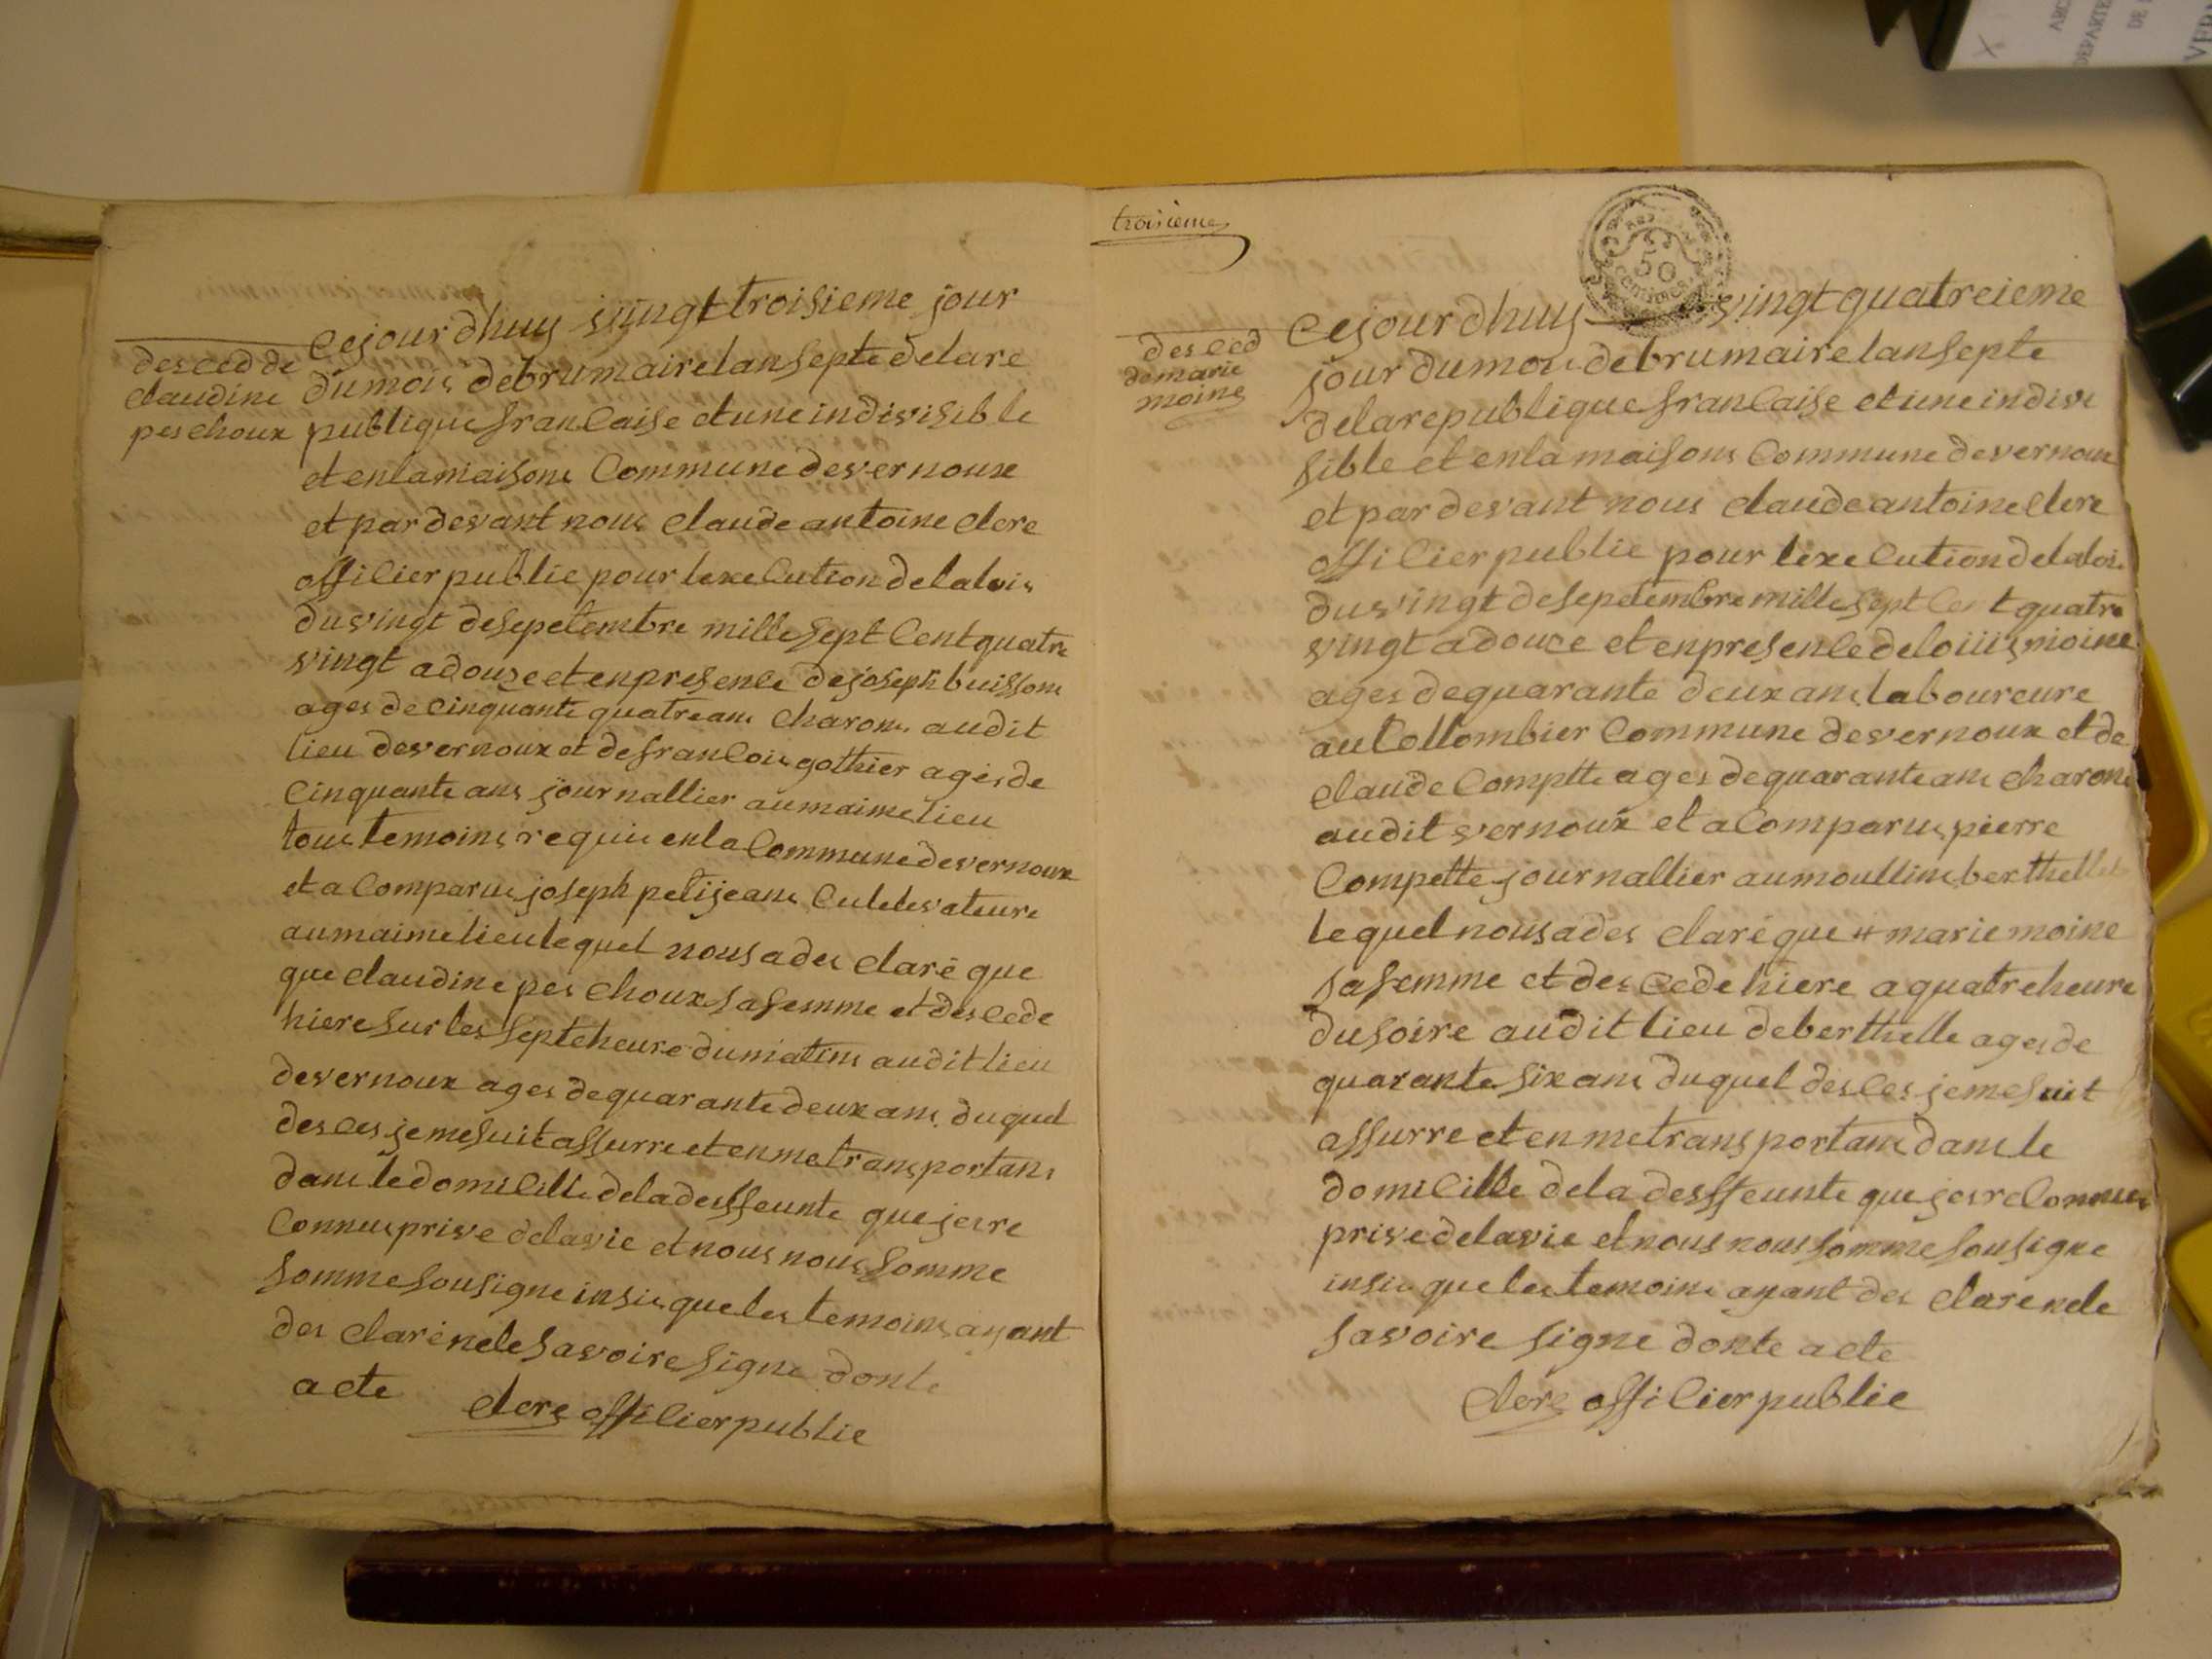 cejour dhuy vingt troisieme jour
desced de
claudine
peschoux
dumois debrumaire lan septe delare
publique francaise etune indivisible
et enlamaisons Commune devernoux
et pardevant nous claude antoine clerc
officier public pour lexecution delalois
duvingt desepetembre mille sept Cent quatre
vingt adouze et enpresence dejoseph buissons
ages de cinquante quatre ans charons audit
lieu devernoux et defrancois gothier ages de
cinquante ans journallier aumaime lieu
tous temoins requis enla Commune devernoux
et a Comparus joseph petijeans Culetevateure
aumaime lieu lequel nous a des claré que
que claudine pes choux safemme et des cede
hiere sur les septe heure dumatins audit lieu
devernoux ages dequarante deux ans duquel
desces jemesuit assurre et enmetransportans
dans le domicille deladesffeunte que jesre
Connus prive delavie et nous nous Somme
Somme Sousigne insis que les temoins ayant
des clarénele Savoire Signe donte
acte
clerc officier public
troisieme
50
CENTIMES
desced
demarie
moine
Cejour dhuy vingt quatreieme
jour dumois debrumaire lan septe
delarepublique francaise et une indivi
sible et enla maisons Commune devernoux
et par devant nous claude antoine clerc
officier public pour lexecution delalois
duvingt desepetembre mille sept Cent quatre
vingt adouze et enpresence delouis moine
ages dequarante deux ans laboureure
au Collombier Commune devernoux et de
claude Comptte ages dequarante ans charons
audit vernoux et a Comparus pierre
Compette journallier aumoullins berthelle
lequel nous a des claré que marie moine
safemme et des cede hiere a quatre heure
dusoire audit lieu deberthelle ages de
quarante six ans duquel desces jemesuit
assurre et en metransportans dans le
domicille dela desffeunte que jesre Connus
prive delavie et nous nous Somme Sousigne
insis que les temoins ayant des clarenele
Savoire Signe donte acte
clerc officier public
ARC
DEPARTE